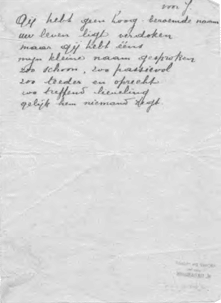 voor J.
Gij hebt geen hoog beroemde naam
uw leven ligt verdoken
maar gij hebt ééns
mijn kleine naam gesproken
zoo schoon, zoo passievol
zoo teeder en oprecht
zoo treffend
gelijk hem niemand zegt.